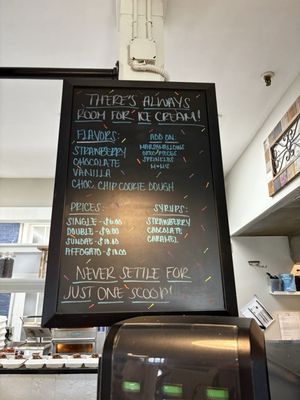 THERE'S ALWAYS
ROOM FOR ICE CREAM!
FLAVORS:
STRAWBERRY
CHOCOLATE
VANILLA
CHOC. CHIP COOKIE DOUGH
ADD ON
MARSHMALLOWS
OREO PIECES
SPRINKLES
M&MS
PRICES:
SINGLE - $6.00
DOUBLE - $8.00
SUNDAE - $10.00
AFFOGATO - $10.00
SYRUPS:
STRAWBERRY
CHOCOLATE
CARAMEL
NEVER SETTLE FOR
JUST ONE SCOOP!